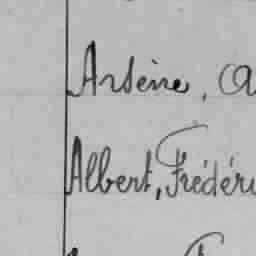 Arsène, A
Albert, Frédéri